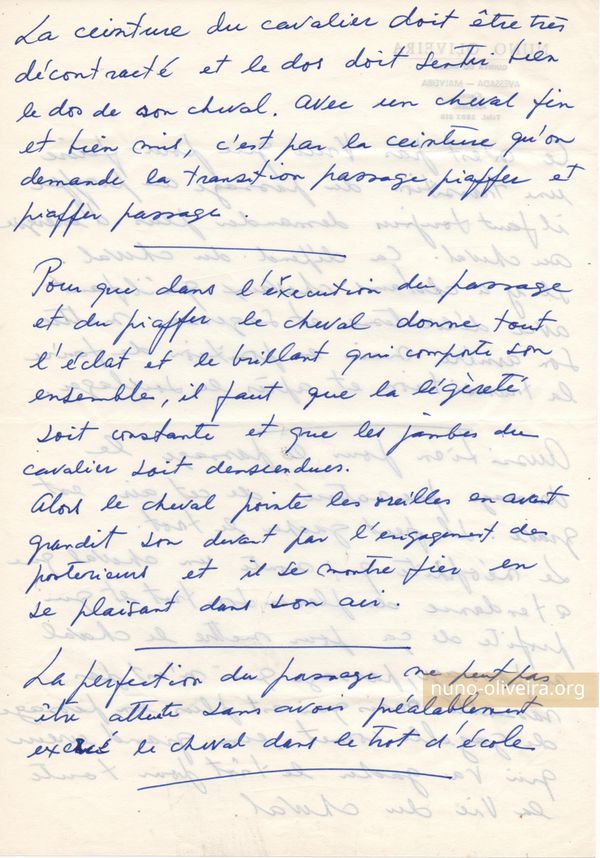 La ceinture du cavalier doit être très
décontracté et le dos doit sentir bien
le dos de son cheval. Avec un cheval fin
et bien mis, c'est par la ceinture qu'on
demande la transition passage piaffer et
piaffer passage.
Pour que dans l'éxécution du passage
et du piaffer le cheval donne tout
l'éclat et le brillant qui comporte son
ensembles, il faut que la légèreté
soit constante et que les jambes du
cavalier soit denscendues.
Alors le cheval pointe les oreilles en avant
grandit son devant par l'engagement des
posterieurs et il se montre fier en
se plaisant dans son air.
La perfection du passage ne peut pas
être atteite sans avoir préalablement
exercé le cheval dans le trot d'école
nuno-oliveira.org
NUNO OLIVEIRA
AVESSADA — MALVEIRA